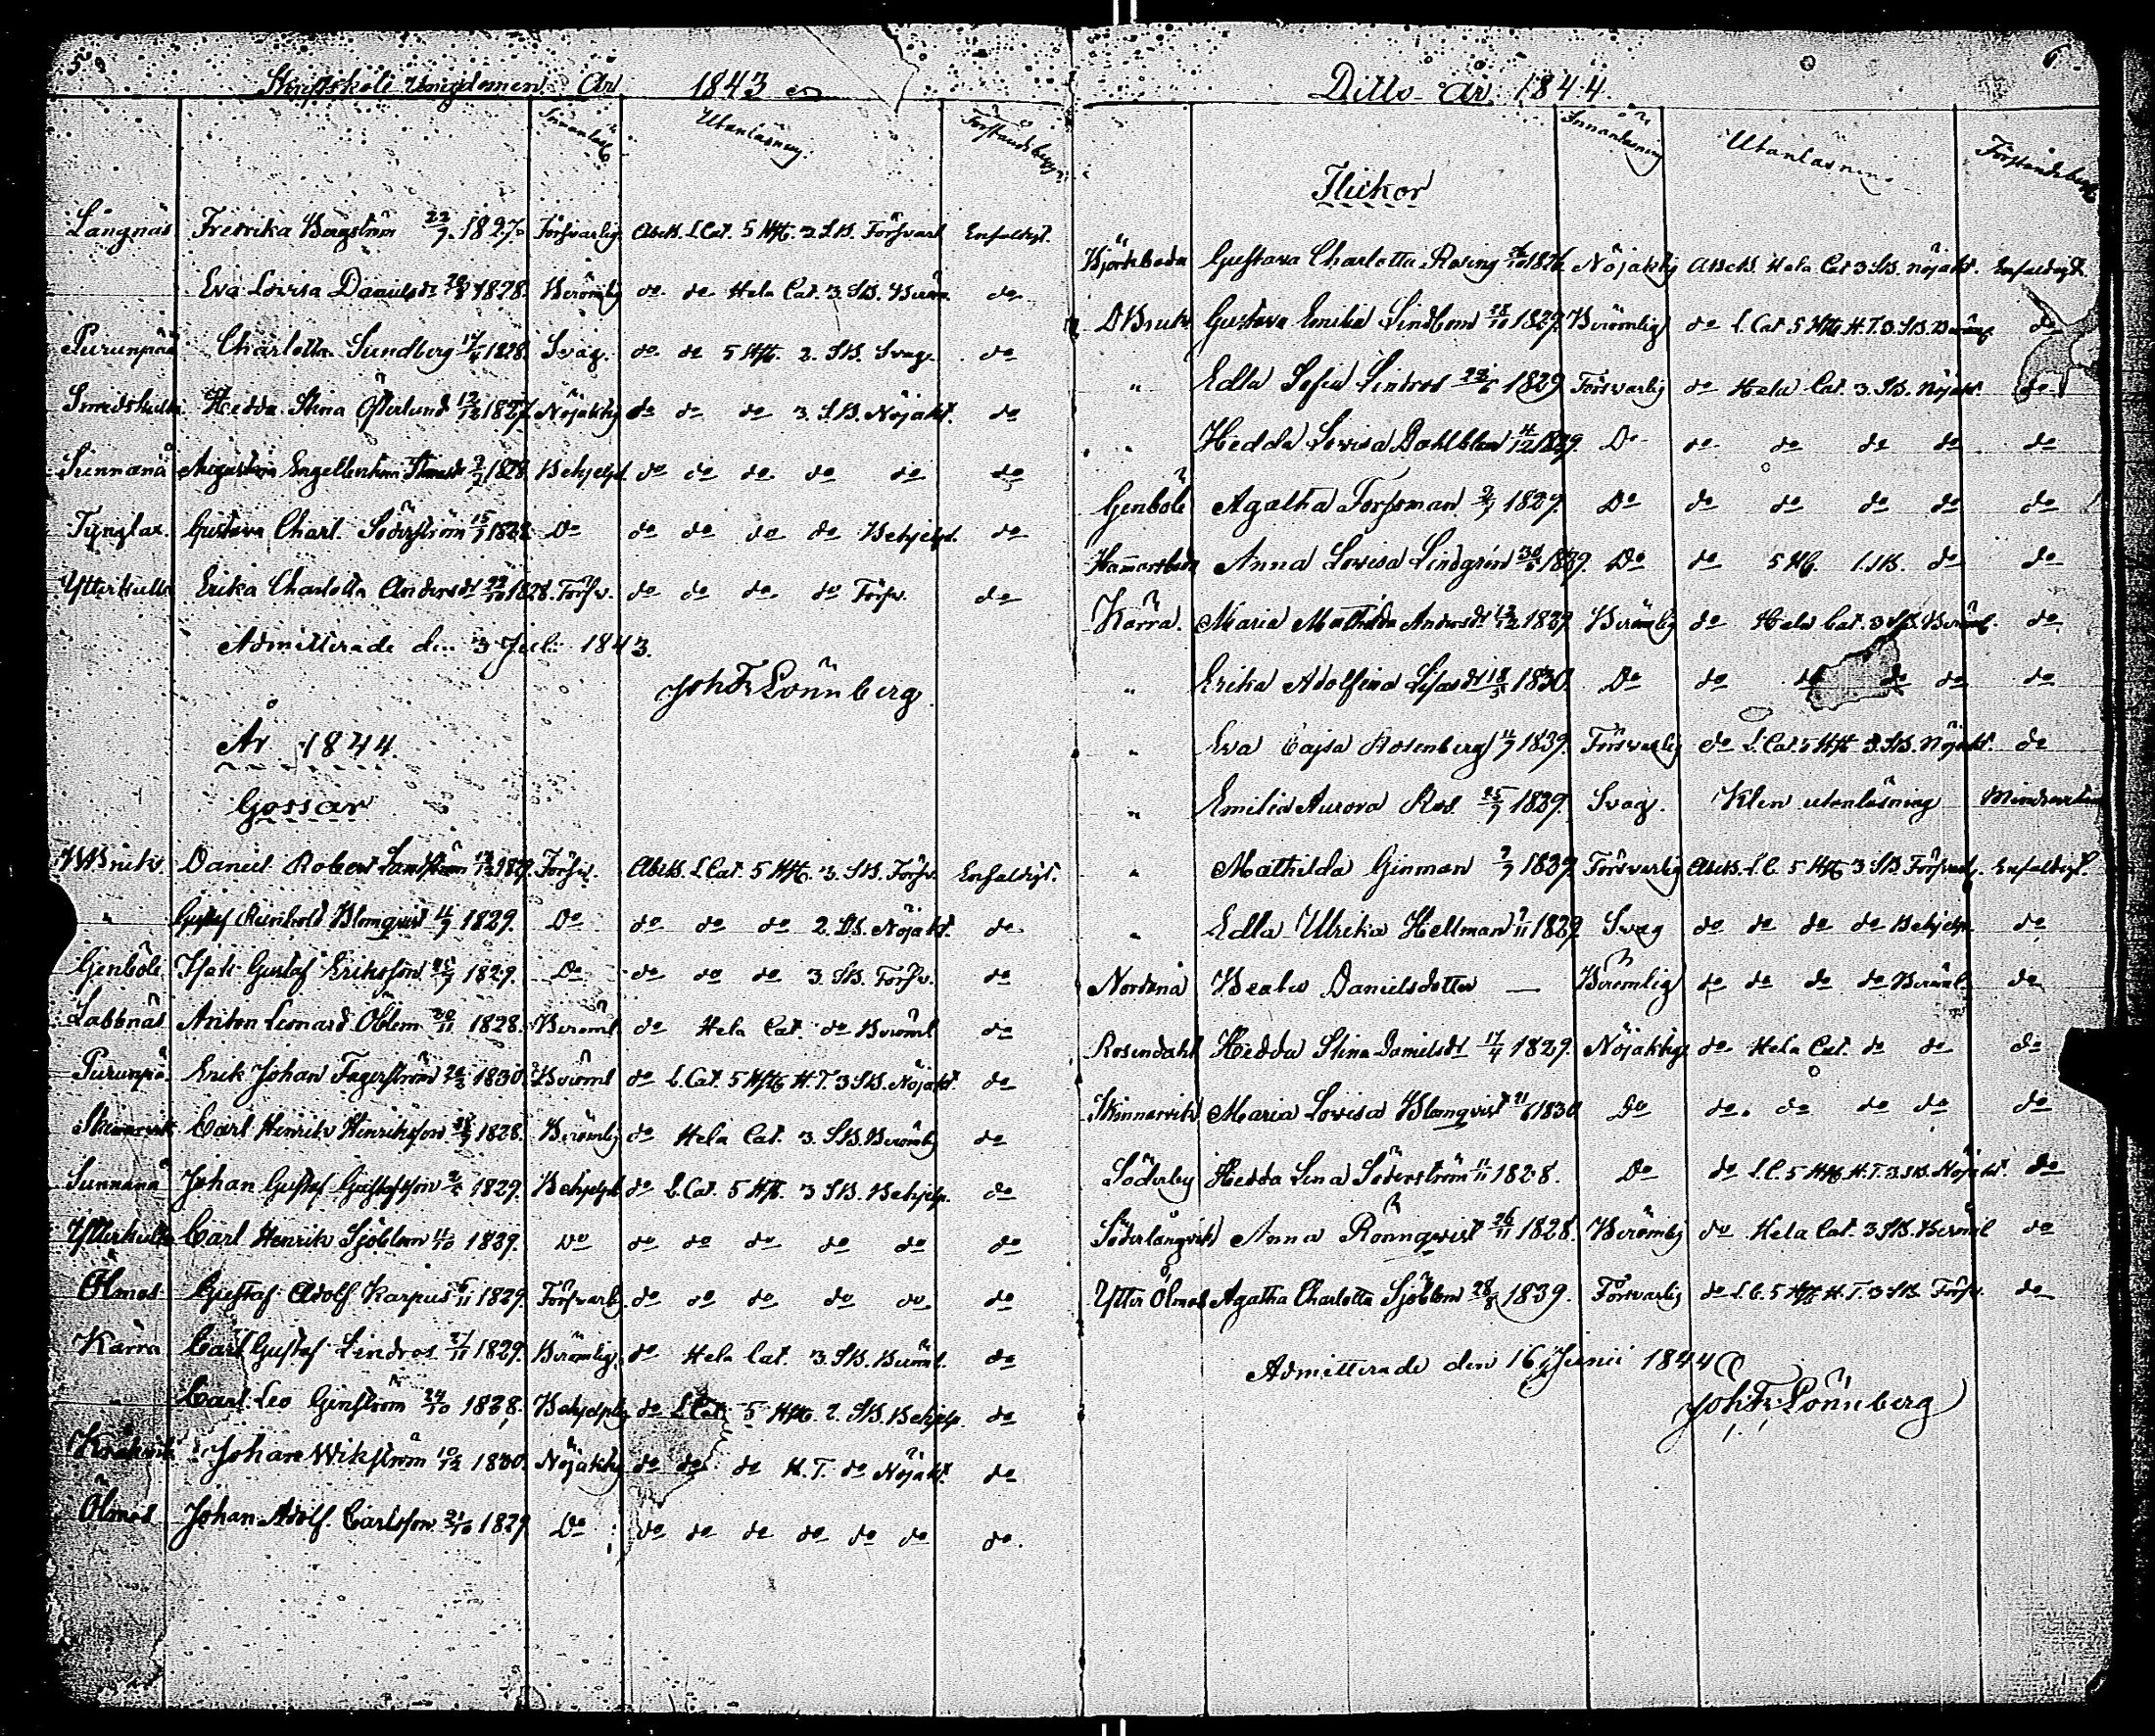 5.
Skriftskole Ungdomen År 1843
Innanläs. Utanläsning. Förståndsbegr.
Långnäs Fredrika Bergström 22/7 1827. Försvarlig AbcB. L.Cat. 5 Hft. 2 SB. Försvarl Enfaldigt.
Eva Lovisa Danielsdr 1828. Berömlig do do Hela Cat. 3. SB. Beröm. do
Purunpää Charlotta Sundberg 1828. Svag. do do 5 Hft. 2. SB. Svag. do
Hedda Stina Österlund 12/12 1827 Nöjaktig do do do 3. SB. Nöjakt. do
Sunnanå Engellentina 1828 Behjelpl do do do do do do
Tynglax. Gustava Charl. Söderström 15/7 1828 Do do do do do Behjelpl. do
Ytterkulla Erika Charlotta Andersdr 1828. Försv. do do do do Försv. do
Admitterade den 3 Juli 1843.
Joh Fr Lönnberg
År 1844.
Gossar
Daniel Robert Landström 1829. Försv. AbcB. L.Cat. 5 Hft. 3. SB. Försv. Enfaldigt.
" Gustaf Reinhold Blomqvist 1829. Do do do do 2. SB. Nöjakt. do
Genböle Isak Gustaf Eriksson 1829. Do do do do 3. SB. Försv. do
Labbnäs Anton Leonard Öblom 20/11 1828. Beröml do Hela Cat. do Beröml do
Purunpä. Erik Johan Fagerström 1830. Beröml do L.Cat. 5 Hft H.T. 3 SB. Nöjakt. do
Carl Henrik Henriksson 1828. Berömlig do Hela Cat. 3. SB. Berömlig do
Sunnanå Johan Gustaf Gustafsson 1829. Behjelpl do L.Cat. 5 Hft. 3 SB. Behjelp. do
Ytterkulla Carl Henrik Sjöblom 1829. Do do do do do do do
Ölmos Gustaf Adolf Karpus 1829. Försvarlig do do do do do do
Kärra Carl Gustaf Lindros 1829. Berömlig. do Hela Cat. 3. SB. Beröml. do
" Carl Leo Genström 24/10 1828. Behjelplig do L.Cat 5 Hft. 2. SB. Behjelp. do
Johan Wikström 10/12 1830. Nöjaktig do do do H.T. do Nöjakt. do
Ölmos Johan Adolf Carlsson 21/10 1829 Do do do do do do do do.
6.
Ditto År 1844.
Innanläsning Utanläsning Förståndsbegr
Flickor
Björkboda Gustava Charlotta Rosing Nöjaktig AbcB. Hela Cat 3 SB. nöjakt. Enfaldigt.
DBruk Gustava Emilia Lindbom 1829. Berömlig do L.Cat 5 Hft H.T. 3 SB. Beröml. do
" Edla Sofia Lindros 23/6 1829 Försvarlig do Hela Cat. 3. SB. Nöjakt. do
" Hedda Lovisa Dahlblom 4/12 1829. Do do do do do do
Genböle Agatha Forssman 1829. Do do do do do do
Hammarsboda Anna Lovisa Lindgrén 1829. Do do 5 Hft. 1. SB. do do
Kärra. Maria Mathilda Andersdr 13/12 1829 Berömlig do Hela Cat. 3 SB. Beröml. do
" Erika Adolfina 1830. Do do do do do do
" Eva Cajsa Rosenberg 1829. Försvarlig do L.Cat. 5 Hft 3. SB. Nöjakt. do
" Emilia Aurora Ros 25/7 1829. Svag. Klen utanläsning
" Mathilda Ginman 1829. Försvarlig AbcB. L.C. 5 Hft 3 SB. Försvarl. Enfaldigt.
" Edla Ulrika Hellman 1829 Svag do do do do Behjelp. do
Nordanå Beata Danielsdotter — Berömlig do do do do Beröml. do
Rosendahl Hedda Stina Danielsdr 17/4 1829. Nöjaktig do Hela Cat. do do do
Skinnarvik Maria Lovisa Blomqvist 21/6 1830 Do do. do do do do
Söderby Hedda Lena Söderström 11/11 1828. Do do L.C. 5 Hft. H.T. 3. SB. Nöjakt. do
Söderlångvik Anna Rönnqvist 26/11 1828. Berömlig do Hela Cat. 3 SB. Beröml do
Ytter Ölmos Agatha Charlotta Sjöblom 28/8 1829. Försvarlig do L.C. 5 Hft H.T. 3 SB. Försv. do
Admitterade den 16 Junii 1844
Joh Fr Lönnberg